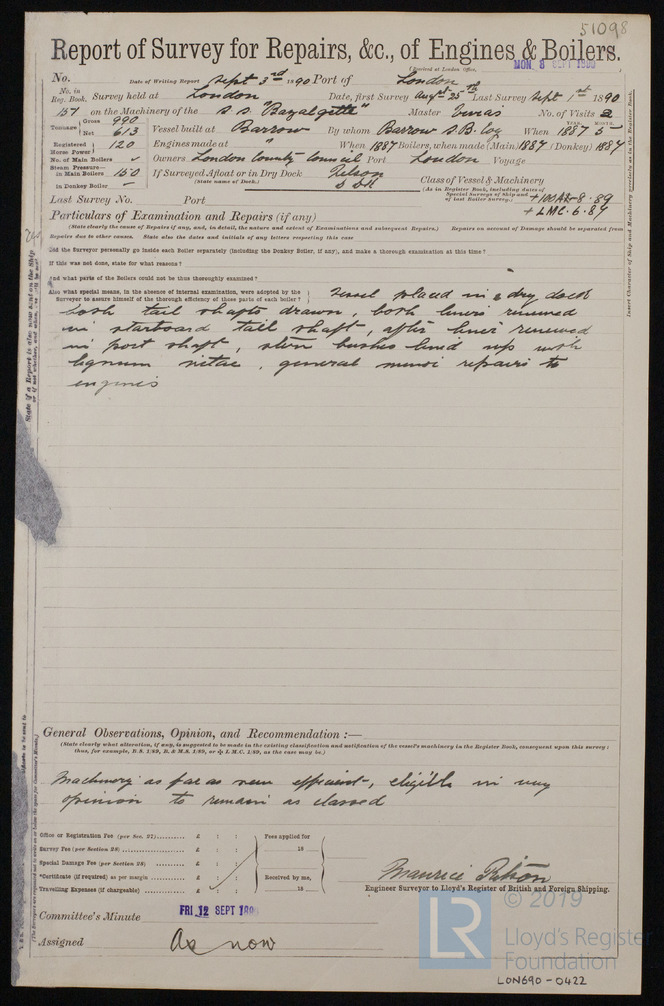 51098
Report of Survey for Repairs, &c., of Engines & Boilers.
(Received at London Office, MON. 8 SEPT 1890
No. Date of Writing Report Sept 3rd 1890 Port of London
No. in Reg. Book. Survey held at London Date, first Survey Augst 25th Last Survey Sept 1st 1890
157 on the Machinery of the S.S. "Bazalgette" Master No. of Visits 2
Tonnage { Gross 990 Net 613 Vessel built at Barrow By whom Barrow S.B. Coy When 1887 5 YEAR. MONTH.
Registered Horse Power } 120 Engines made at " When 1887 Boilers, when made (Main) 1887 (Donkey) 1887
No. of Main Boilers Owners London County Council Port London Voyage
Steam Pressure— in Main Boilers 150 If Surveyed Afloat or in Dry Dock
(State name of Dock.) Class of Vessel & Machinery
in Donkey Boiler — (As in Register Book, including dates of Special Surveys of Ship and of last Boiler Survey.)
Last Survey No. Port +100A1-8.89
+LMC.6.87
Particulars of Examination and Repairs (if any)
(State clearly the cause of Repairs if any, and, in detail, the nature and extent of Examinations and subsequent Repairs.) Repairs on account of Damage should be separated from
Repairs due to other causes. State also the dates and initials of any letters respecting this case
Did the Surveyor personally go inside each Boiler separately (including the Donkey Boiler, if any), and make a thorough examination at this time?
If this was not done, state for what reasons?
And what parts of the Boilers could not be thus thoroughly examined?
Also what special means, in the absence of internal examination, were adopted by the Surveyor to assure himself of the thorough efficiency of those parts of each boiler?
Vessel placed in a dry dock
both tail shafts drawn, both liners renewed
in starboard tail shaft, after liner renewed
in port shaft, stern bushes lined up with
lignum vitae, general minor repairs to
engines
General Observations, Opinion, and Recommendation :—
(State clearly what alteration, if any, is suggested to be made in the existing classification and notification of the vessel's machinery in the Register Book, consequent upon this survey: thus, for example, B.S. 1/89, B.& M.S. 1/89, or + L.M.C. 1/89, as the case may be.)
Machinery as far as seen efficient, eligible in my
opinion to remain as classed
Office or Registration Fee (per Sec. 27).......... £ : : Fees applied for
Survey Fee (per Section 28) .................... £ : : 18
Special Damage Fee (per Section 28) ........ £ : :
*Certificate (if required) as per margin ........ £ : : Received by me,
Travelling Expenses (if chargeable) ............ £ : : 18
Maurice
Engineer Surveyor to Lloyd's Register of British and Foreign Shipping.
Committee's Minute FRI. 12 SEPT 1890
Assigned As now
© 2019
LR Lloyd's Register
Foundation
LON690-0422